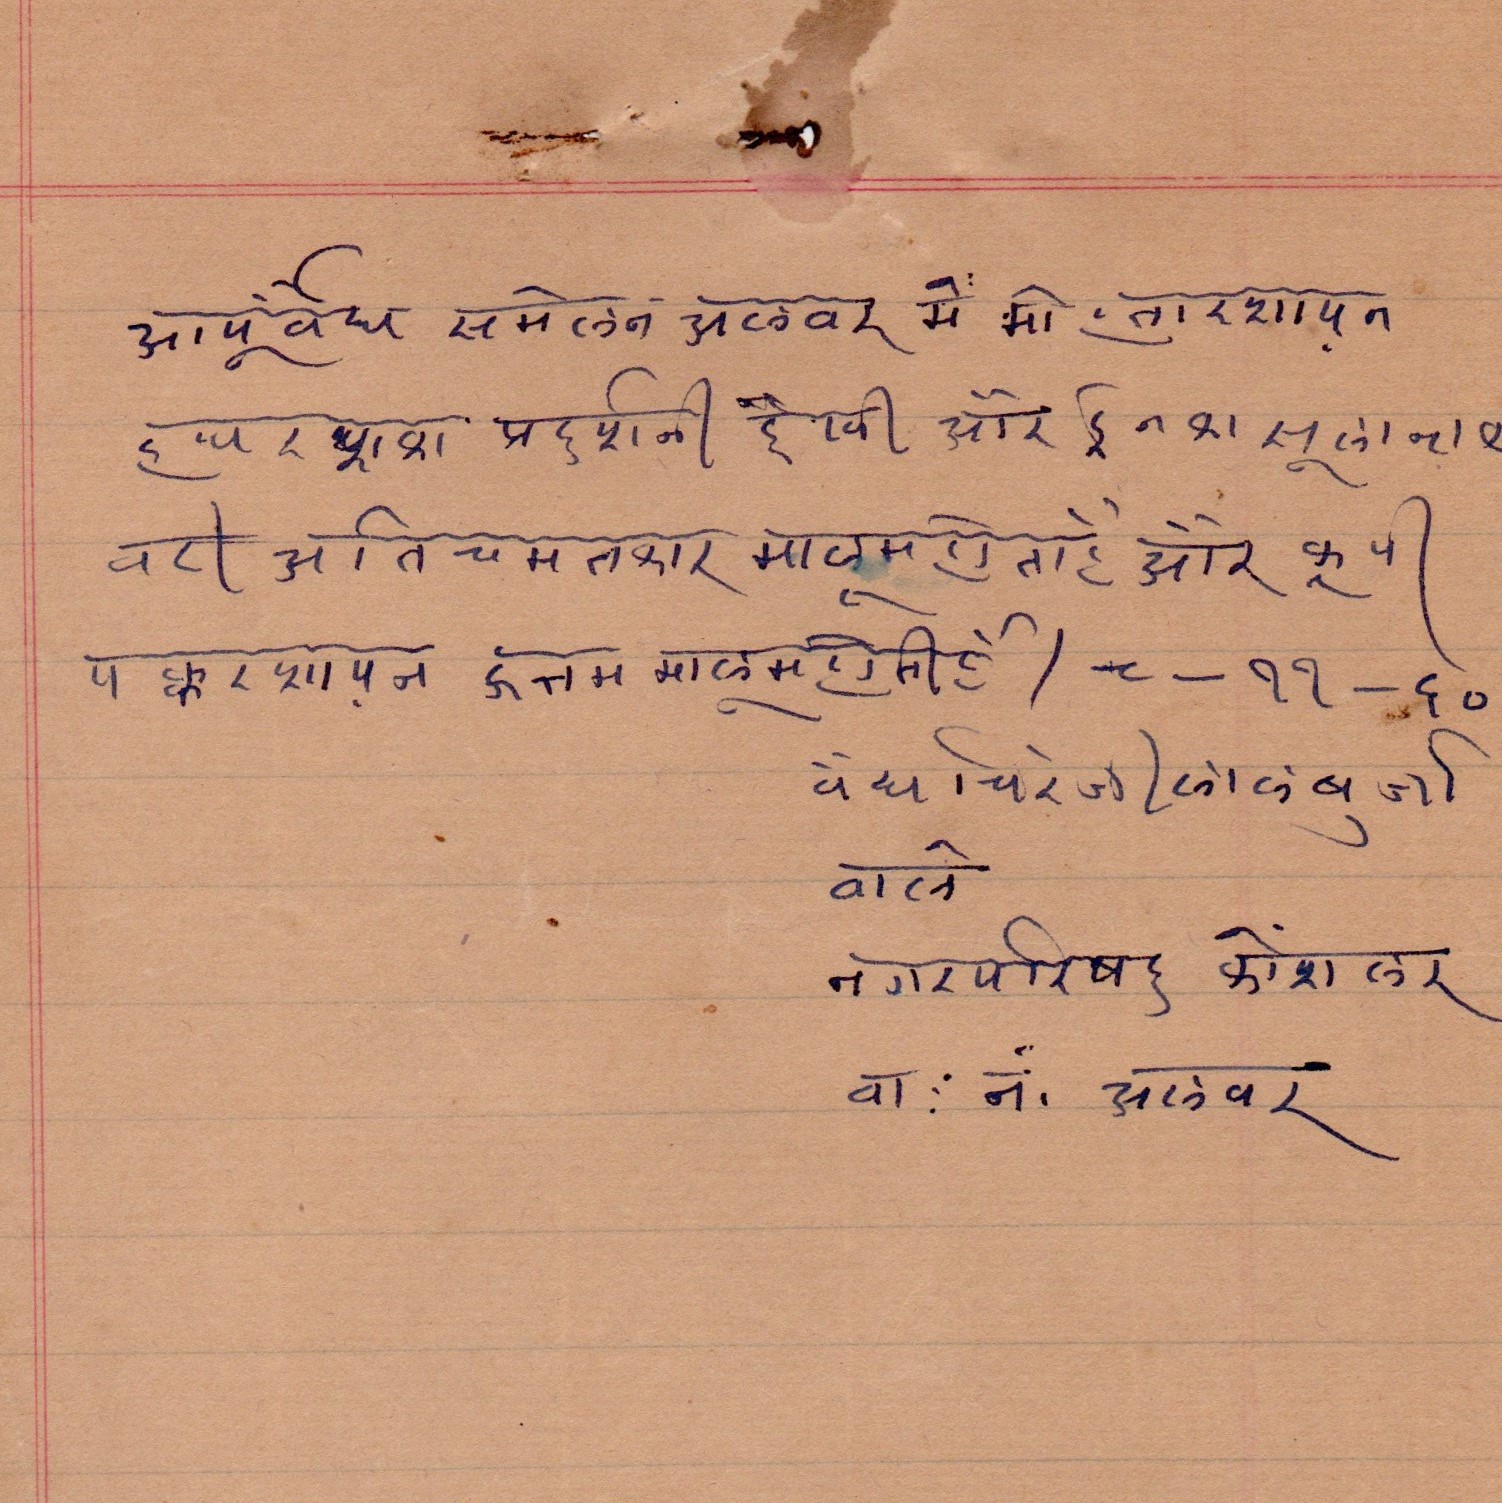 आयूर्वेद्य समेलन अलवर में मोहतारशायन
प्रदर्शनी देखी और इनका सूलनाश
वटी अति चमतकार मालूम होता है और कूपी
पक्करशायन ऊत्तम मालूम होती है। ८-११-६०
वैद्य चिरंजीलाल बुर्जा
वाले
नगरपरिषद कोंशलर
वा: नं. अलवर